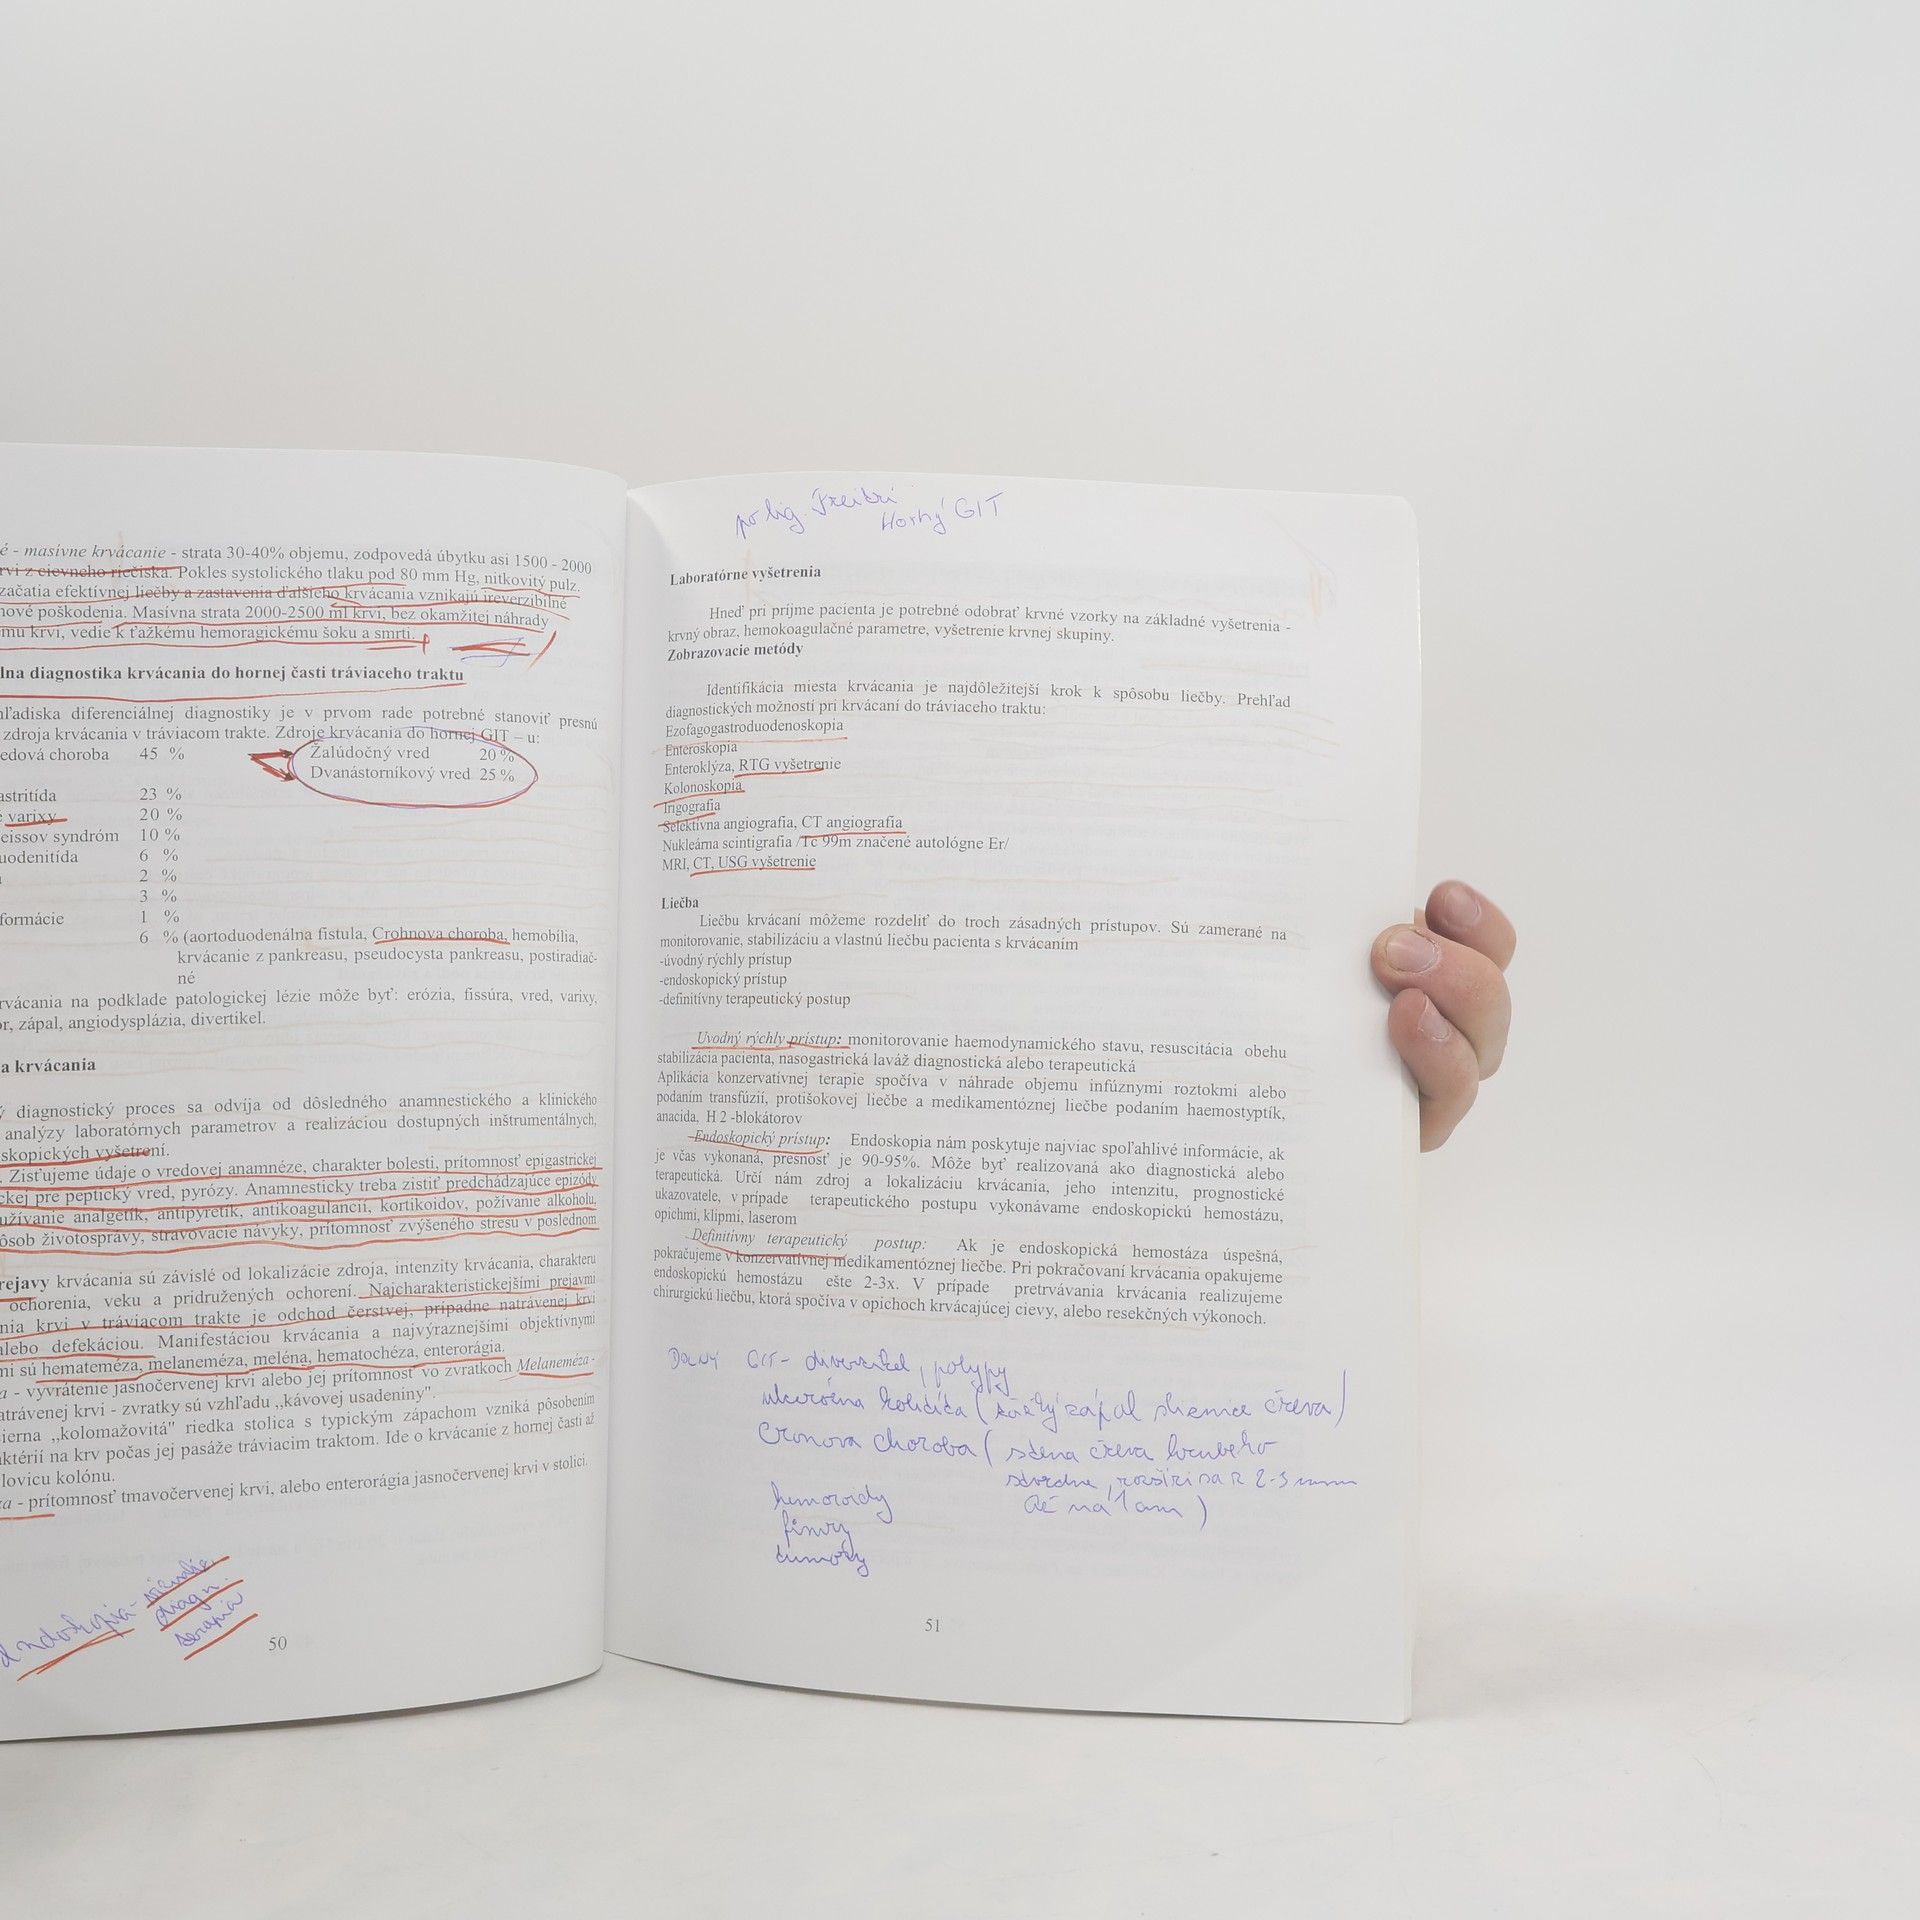 é - masívne krvácanie - strata 30-40% objemu, zodpovedá úbytku asi 1500 - 2000
rvi z cievneho riečiska. Pokles systolického tlaku pod 80 mm Hg, nitkovitý pulz.
začatia efektívnej liečby a zastavenia ďalšieho krvácania vznikajú ireverzibilné
nové poškodenia. Masívna strata 2000-2500 ml krvi, bez okamžitej náhrady
mu krvi, vedie k ťažkému hemoragickému šoku a smrti.
lna diagnostika krvácania do hornej časti tráviaceho traktu
hľadiska diferenciálnej diagnostiky je v prvom rade potrebné stanoviť presnú
zdroja krvácania v tráviacom trakte. Zdroje krvácania do hornej GIT – u:
edová choroba 45 % Žalúdočný vred 20 %
Dvanástorníkový vred 25 %
astritída 23 %
varixy 20 %
eissov syndróm 10 %
uodenitída 6 %
2 %
3 %
formácie 1 %
6 % (aortoduodenálna fistula, Crohnova choroba, hemobília,
krvácanie z pankreasu, pseudocysta pankreasu, postiradiač-
né
rvácania na podklade patologickej lézie môže byť: erózia, fissúra, vred, varixy,
or, zápal, angiodysplázia, divertikel.
a krvácania
ý diagnostický proces sa odvíja od dôsledného anamnestického a klinického
analýzy laboratórnych parametrov a realizáciou dostupných inštrumentálnych,
skopických vyšetrení.
. Zisťujeme údaje o vredovej anamnéze, charakter bolesti, prítomnosť epigastrickej
ckej pre peptický vred, pyrózy. Anamnesticky treba zistiť predchádzajúce epizódy
užívanie analgetík, antipyretík, antikoagulancií, kortikoidov, požívanie alkoholu,
ôsob životosprávy, stravovacie návyky, prítomnosť zvýšeného stresu v poslednom
rejavy krvácania sú závislé od lokalizácie zdroja, intenzity krvácania, charakteru
ochorenia, veku a pridružených ochorení. Najcharakteristickejšími prejavmi
nia krvi v tráviacom trakte je odchod čerstvej, prípadne natrávenej krvi
alebo defekáciou. Manifestáciou krvácania a najvýraznejšími objektívnymi
mi sú hemateméza, melaneméza, meléna, hematochéza, enterorágia.
a - vyvrátenie jasnočervenej krvi alebo jej prítomnosť vo zvratkoch Melaneméza-
atrávenej krvi - zvratky sú vzhľadu ,,kávovej usadeniny".
ierna ,,kolomažovitá" riedka stolica s typickým zápachom vzniká pôsobením
aktérií na krv počas jej pasáže tráviacim traktom. Ide o krvácanie z hornej časti až
lovicu kolónu.
za - prítomnosť tmavočervenej krvi, alebo enterorágia jasnočervenej krvi v stolici.
ndoskopia-
diagn.
terapia
50
po lig.
Horný GIT
Laboratórne vyšetrenia
Hneď pri príjme pacienta je potrebné odobrať krvné vzorky na základné vyšetrenia -
krvný obraz, hemokoagulačné parametre, vyšetrenie krvnej skupiny.
Zobrazovacie metódy
Identifikácia miesta krvácania je najdôležitejší krok k spôsobu liečby. Prehľad
diagnostických možností pri krvácaní do tráviaceho traktu:
Ezofagogastroduodenoskopia
Enteroskopia
Enteroklýza, RTG vyšetrenie
Kolonoskopia
Irigografia
Selektívna angiografia, CT angiografia
Nukleárna scintigrafia /Tc 99m značené autológne Er/
MRI, CT, USG vyšetrenie
Liečba
Liečbu krvácaní môžeme rozdeliť do troch zásadných prístupov. Sú zamerané na
monitorovanie, stabilizáciu a vlastnú liečbu pacienta s krvácaním
-úvodný rýchly prístup
-endoskopický prístup
-definitívny terapeutický postup
Uvodný rýchly prístup: monitorovanie haemodynamického stavu, resuscitácia obehu
stabilizácia pacienta, nasogastrická laváž diagnostická alebo terapeutická
Aplikácia konzervatívnej terapie spočíva v náhrade objemu infúznymi roztokmi alebo
podaním transfúzií, protišokovej liečbe a medikamentóznej liečbe podaním haemostyptík,
anacida, H 2 -blokátorov
Endoskopický prístup: Endoskopia nám poskytuje najviac spoľahlivé informácie, ak
je včas vykonaná, presnosť je 90-95%. Môže byť realizovaná ako diagnostická alebo
terapeutická. Určí nám zdroj a lokalizáciu krvácania, jeho intenzitu, prognostické
ukazovatele, v prípade terapeutického postupu vykonávame endoskopickú hemostázu,
opichmi, klipmi, laserom
Definitívny terapeutický postup: Ak je endoskopická hemostáza úspešná,
pokračujeme v konzervatívnej medikamentóznej liečbe. Pri pokračovaní krvácania opakujeme
endoskopickú hemostázu ešte 2-3x. V prípade pretrvávania krvácania realizujeme
chirurgickú liečbu, ktorá spočíva v opichoch krvácajúcej cievy, alebo resekčných výkonoch.
Dolný GIT - divertikel, polypy
ulcerózna kolitída ( zápal sliznice čreva)
Cronova choroba ( stena čreva hrubého
stvrdne, rozšíri sa z 2-3 mm
až na 1 cm )
hemoroidy
tumory
51